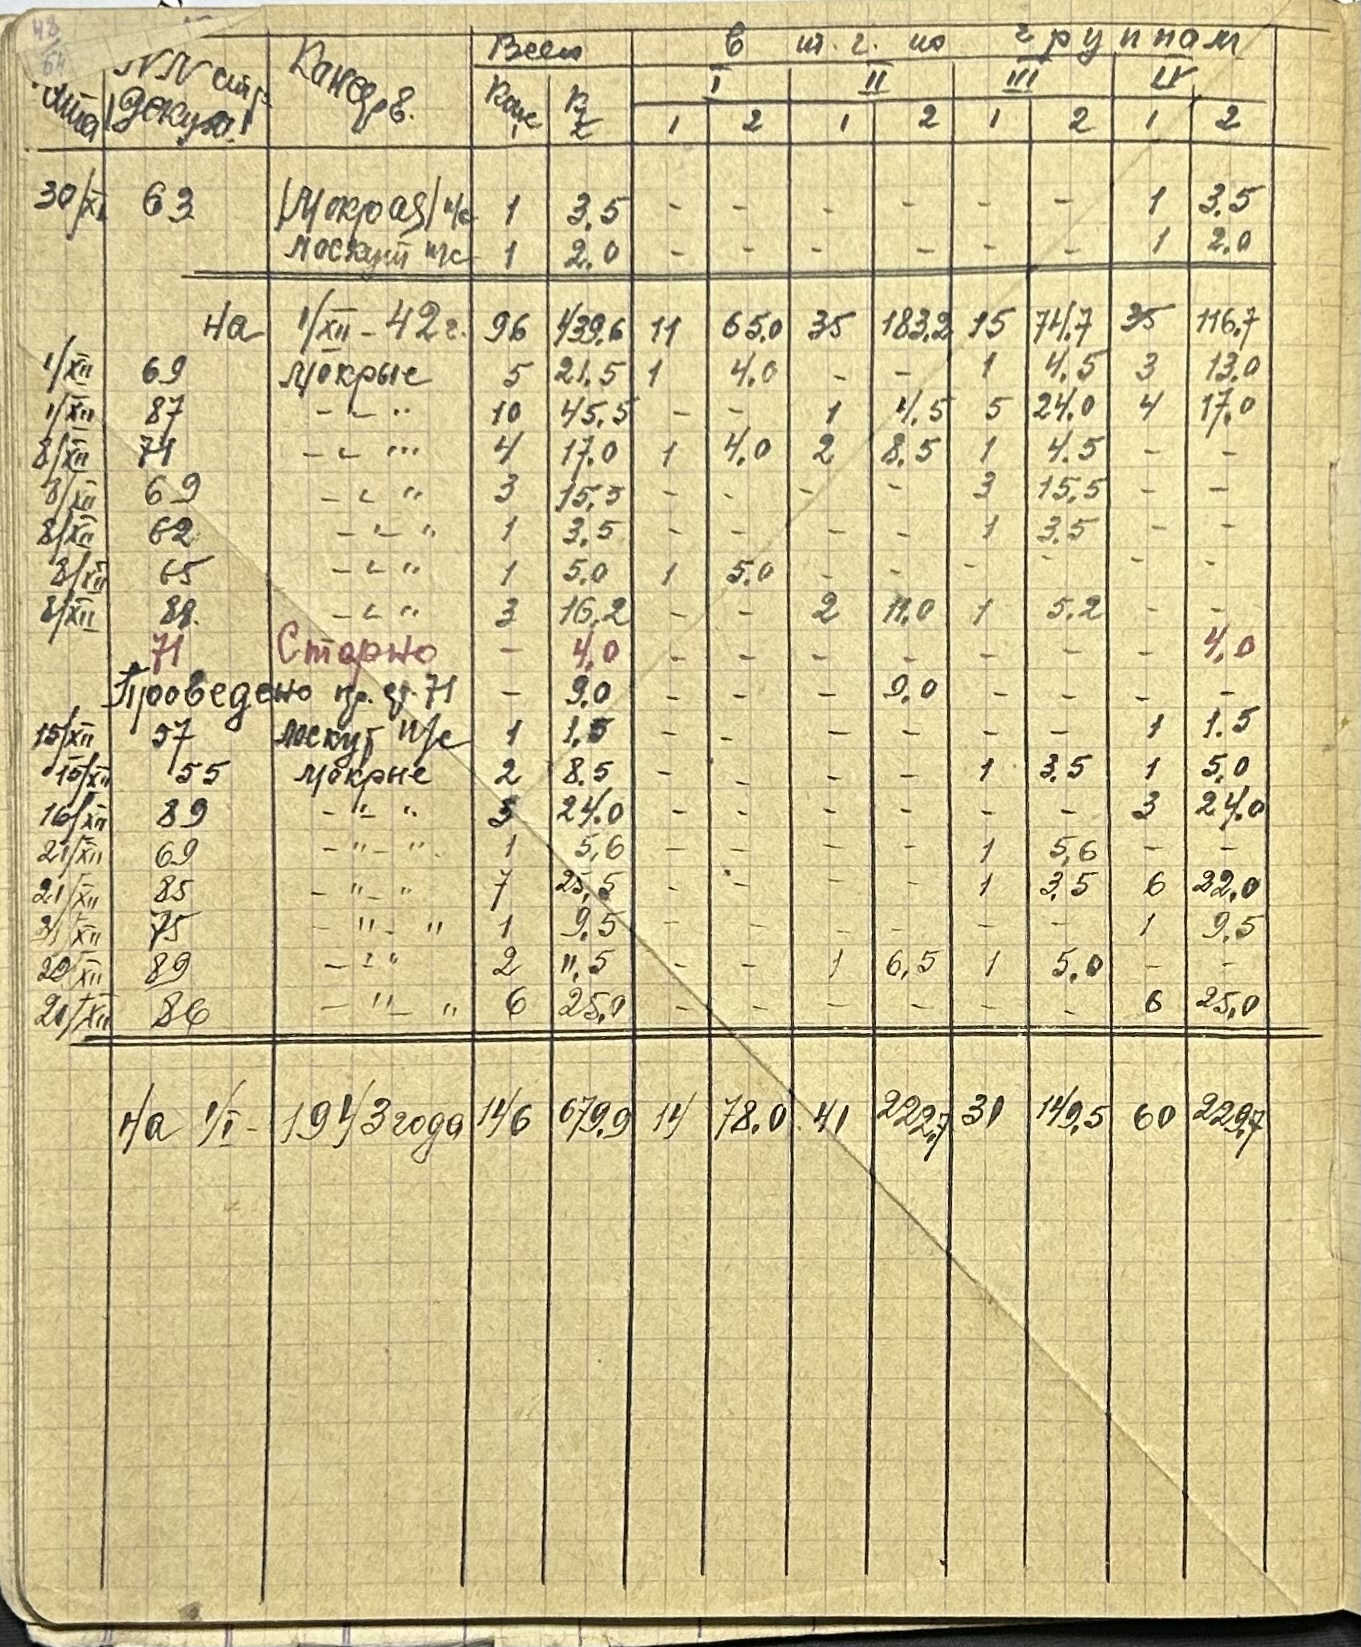 48/64
Всего в т. ч. по группам
NN стр. докум. Канцер. I II III IV
дата Кош. Кг 1 2 1 2 1 2 1 2
30/XI 63 Мокрая н/с 1 3,5 - - - - - - 1 3.5
Лоскут н/с 1 2.0 - - - - - - 1 2.0
На 1/XII - 42 г. 96 439.6 11 65.0 35 183.2 15 74.7 35 116.7
1/XII 69 Мокрые 5 21.5 1 4.0 - - 1 4.5 3 13.0
1/XII 87 - " - " 10 45.5 - - 1 4.5 5 24.0 4 17.0
8/XII 71 - " - " 4 17.0 1 4.0 2 8.5 1 4.5 - -
8/XII 69 - " - " 3 15,5 - - - - 3 15,5 - -
8/XII 62 - " - " 1 3,5 - - - - 1 3,5 - -
8/XII 65 - " - " 1 5.0 1 5.0 - - - - - -
8/XII 88. - " - " 3 16,2 - - 2 11.0 1 5.2 - -
71 Сторно - 4,0 - - - - - - - 4.0
Проведено пр. ст. 71 - 9.0 - - - 9.0 - - - -
15/XII 57 Лоскут н/с 1 1,5 - - - - - - 1 1.5
15/XII 55 Мокрые 2 8.5 - - - - 1 3.5 1 5.0
16/XII 89 - " - " 3 24.0 - - - - - - 3 24.0
21/XII 69 - " - " 1 5,6 - - - - 1 5,6 - -
21/XII 85 - " - " 7 25,5 - - - - 1 3,5 6 22.0
21/XII 75 - " - " 1 9.5 - - - - - - 1 9.5
20/XII 89 - " - " 2 11,5 - - 1 6,5 1 5.0 - -
21/XII 86 - " - " 6 25,0 - - - - - - 6 25,0
На 1/I - 1943 года 146 679.9 14 78.0 41 222,7 31 149,5 60 229,7